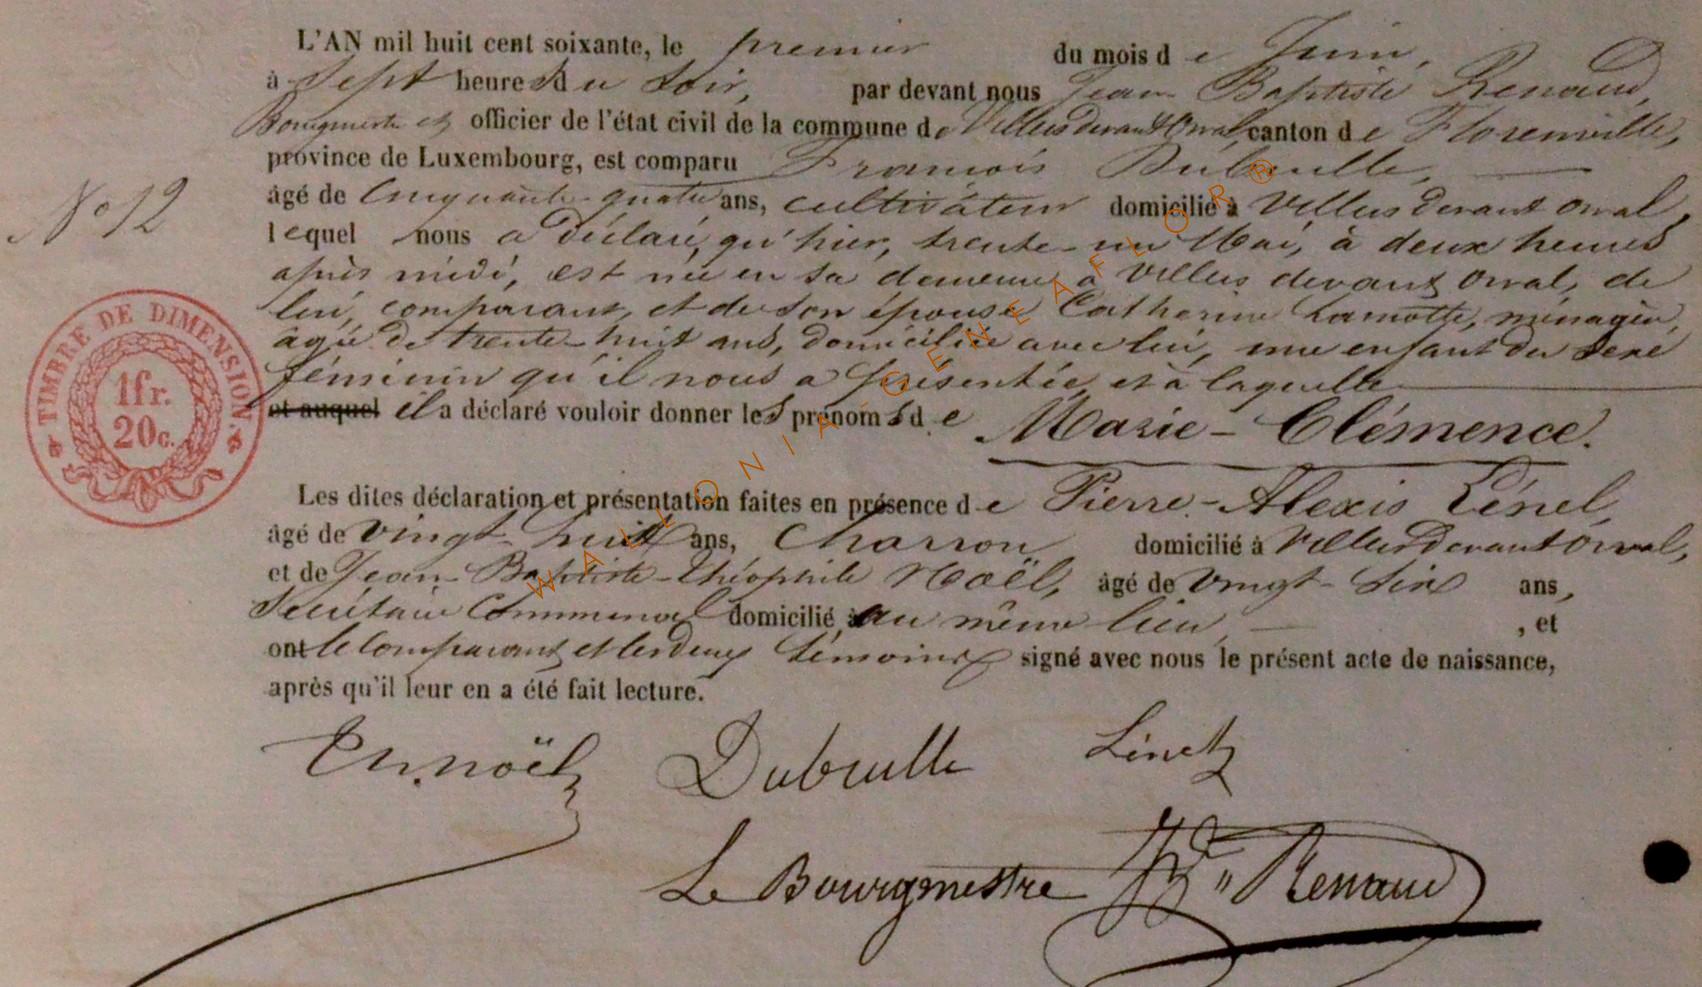 L'AN mil huit cent soixante, le premier du mois de Juin,
à Sept heures du Soir, par devant nous Jean Baptiste Renaud,
Bourgmestre et officier de l'état civil de la commune de Villers devant Orval, canton de Florenville,
province de Luxembourg, est comparu François Dubrulle,
âgé de Cinquante-quatre ans, cultivateur domicilié à Villers devant Orval,
lequel nous a déclaré, qu'hier, trente-un Mai, à deux heures
après midi, est née en sa demeure à Villers devant Orval, de
lui, comparant, et de son épouse Catherine Lamotte, ménagère,
âgée de trente-huit ans, domiciliée avec lui, une enfant du sexe
féminin qu'il nous a présentée, et à laquelle
et auquel il a déclaré vouloir donner les prénoms de Marie-Clémence.
N° 12
TIMBRE DE DIMENSION.
1fr.
20c.
Les dites déclaration et présentation faites en présence de Pierre-Alexis Lénel,
âgé de vingt-huit ans, Charron domicilié à Villers Devant Orval,
et de Jean-Baptiste-Théophile Noël, âgé de vingt-six ans,
Secrétaire Communal domicilié au même lieu, , et
ont le comparant et les deux témoins signé avec nous le présent acte de naissance,
après qu'il leur en a été fait lecture.
Th. noël Dubrulle Lénel
Le Bourgmestre JBte Renaud
WALLONIA-GENEAFLOR®